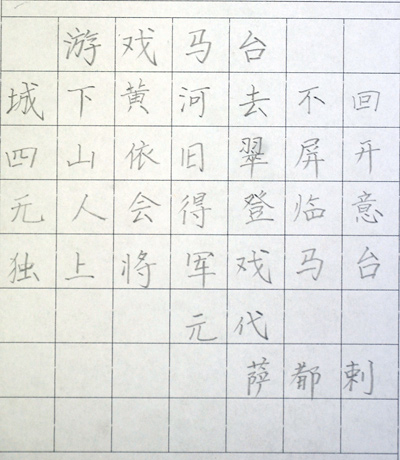 游戏马台
城下黄河去不回
四山依旧翠屏开
无人会得登临意
独上将军戏马台
元代
萨都剌